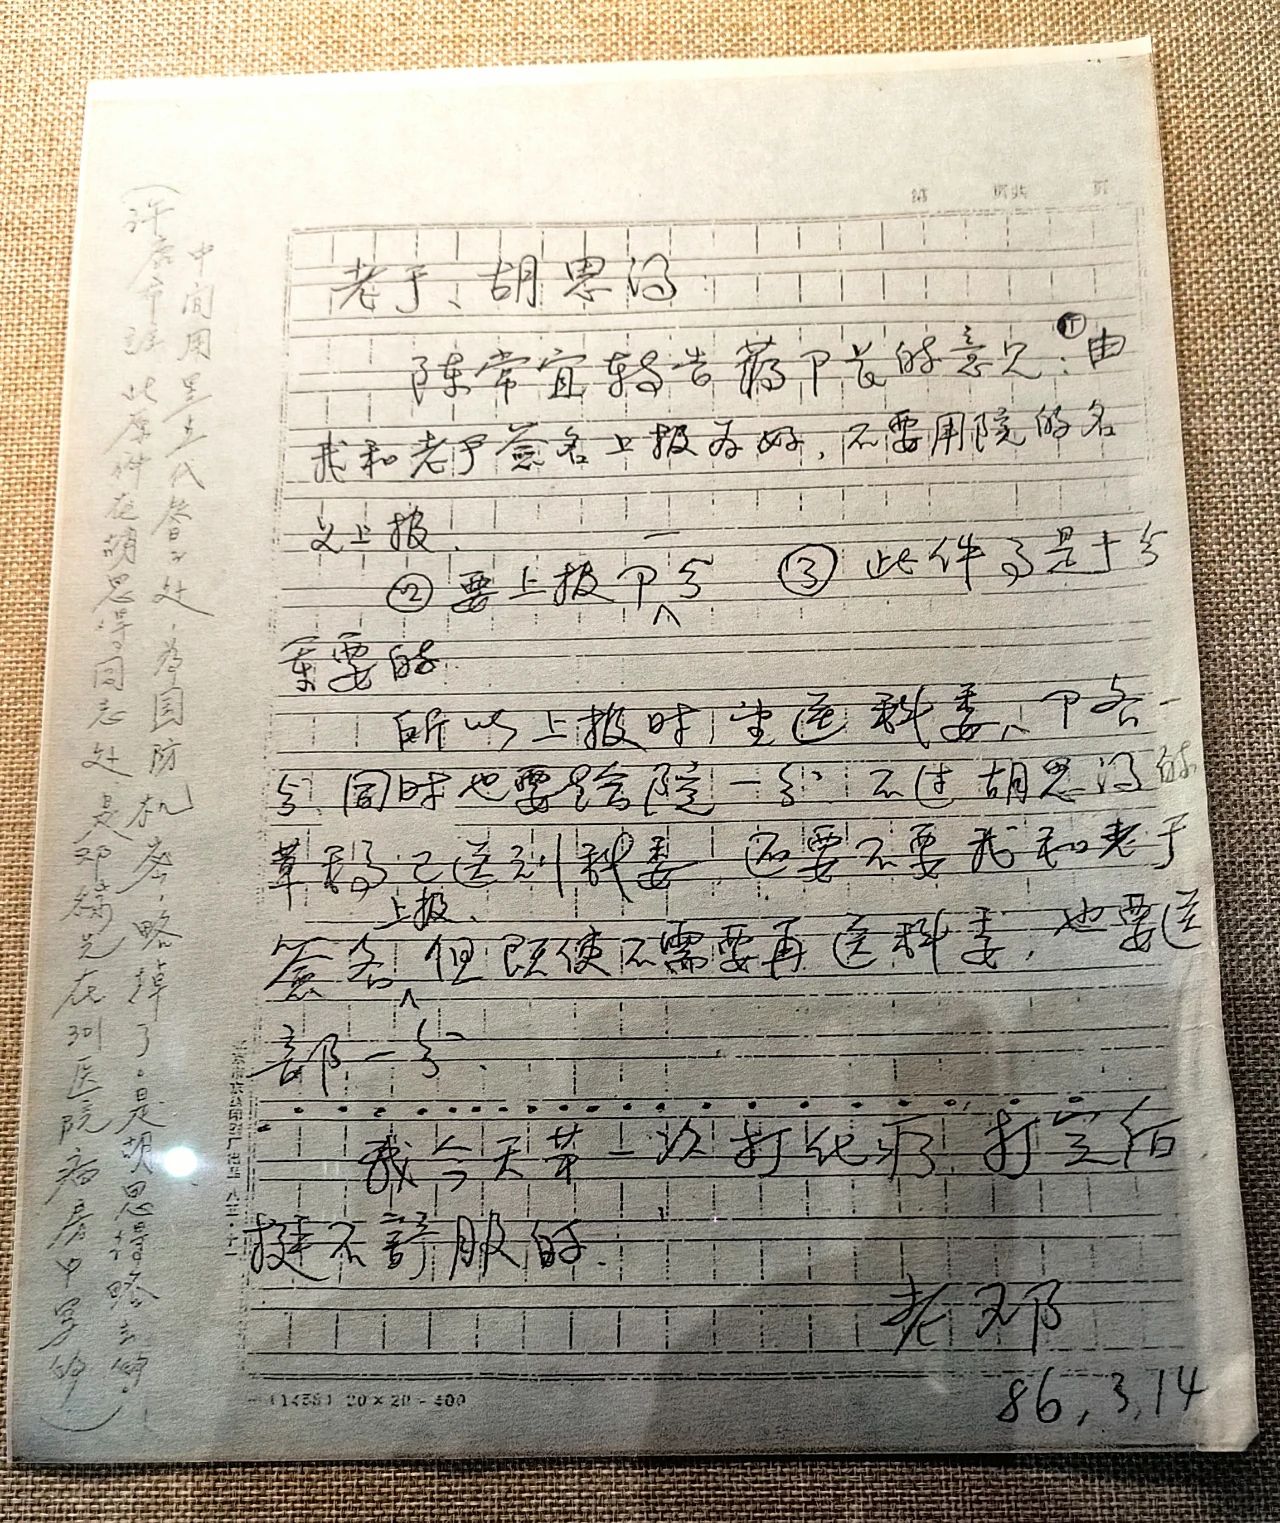 老于、胡思得:
陈常宜转告蒋卩长的意见:①由
我和老于签名上报为好,不要用院的名
义上报.
②要上报卩一分 ③此件了是十分
重要的.
所以上报时,送科委、卩各一
分、同时也要给院一分. 不过胡思得的
草稿已送到科委,还要不要我和老于
签名上报、但既使不需要再送科委,也要送
部一分.
我今天第一次打化疗,打完后
挺不舒服的.
老邓
86,3,14
中间用黑点代替之处,为国防机密,略掉了。是胡思得略去的。
(许鹿希注 此原件在胡思得同志处 是邓稼先在301医院病房中写的)
(1458) 20×20=400